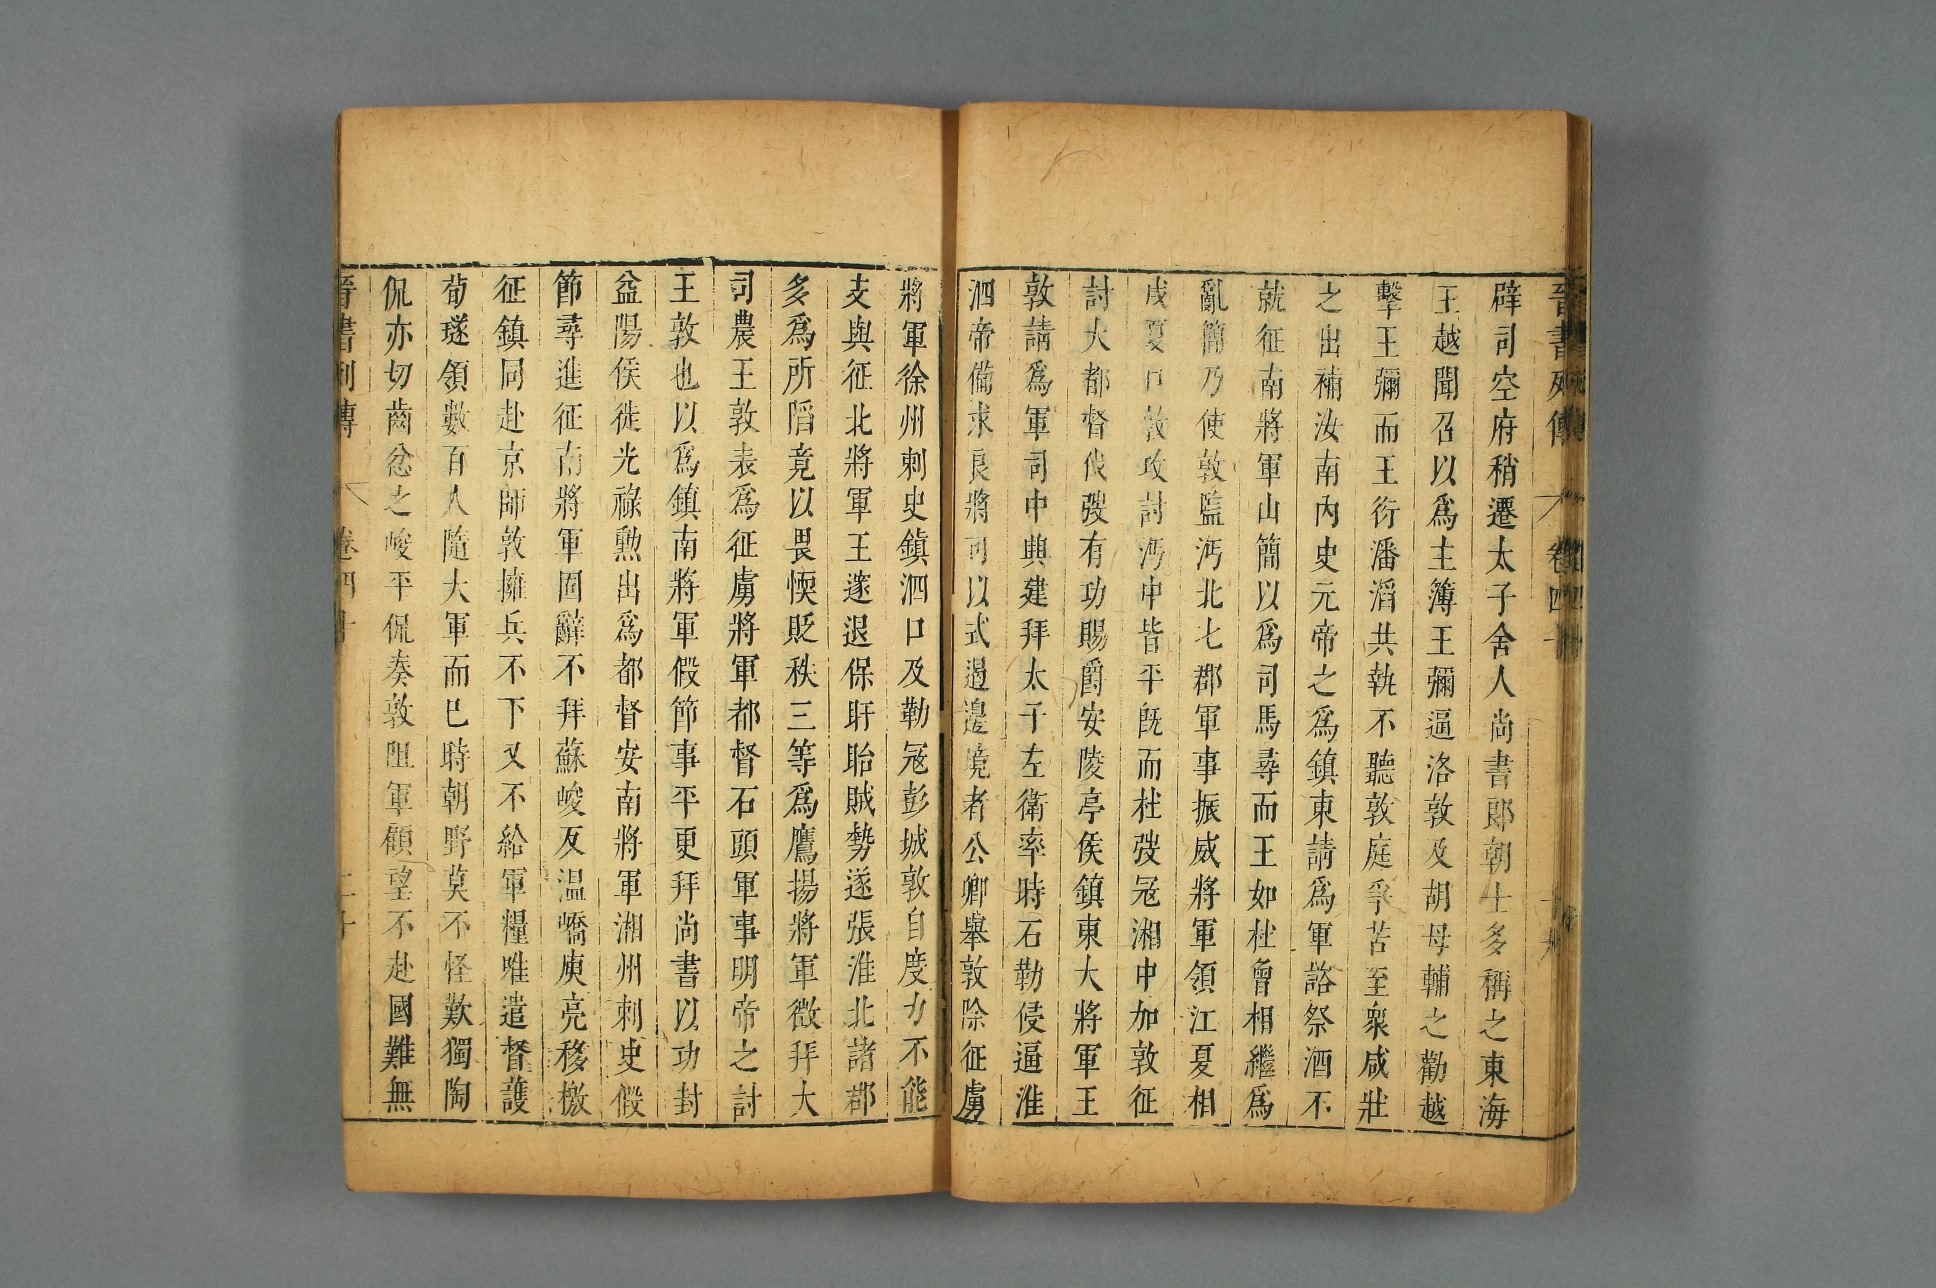 辟司空府稍遷太子舍人尚書郎朝士多稱之東海
王越聞召以爲主簿王彌逼洛敦及胡母輔之勸越
擊王彌而王衍潘滔共執不聽敦庭爭苦至衆咸壯
之出補汝南內史元帝之爲鎮東請爲軍諮祭酒不
就征南將軍山簡以爲司馬尋而王如杜曾相繼爲
亂簡乃使敦監沔北七郡軍事振威將軍領江夏相
戍夏口敦攻討沔中皆平旣而杜弢冦湘中加敦征
討大都督伐弢有功賜爵安陵亭侯鎮東大將軍王
敦請爲軍司中興建拜太子左衛率時石勒侵逼淮
泗帝備求良將可以式遏邊境者公卿舉敦除征虜
將軍徐州刺史鎮泗口及勒冦彭城敦自度力不能
支與征北將軍王邃退保盱眙賊勢遂張淮北諸郡
多爲所陷竟以畏愞貶秩三等爲鷹揚將軍徵拜大
司農王敦表爲征虜將軍都督石頭軍事明帝之討
王敦也以爲鎮南將軍假節事平更拜尚書以功封
益陽侯徙光祿勲出爲都督安南將軍湘州刺史假
節尋進征南將軍固辭不拜蘇峻反温嶠庾亮移檄
征鎮同赴京師敦擁兵不下又不給軍糧唯遣督護
荀璲領數百人隨大軍而已時朝野莫不怪歎獨陶
侃亦切齒忿之峻平侃奏敦阻軍顧望不赴國難無
晉書列傳 卷四十 二十